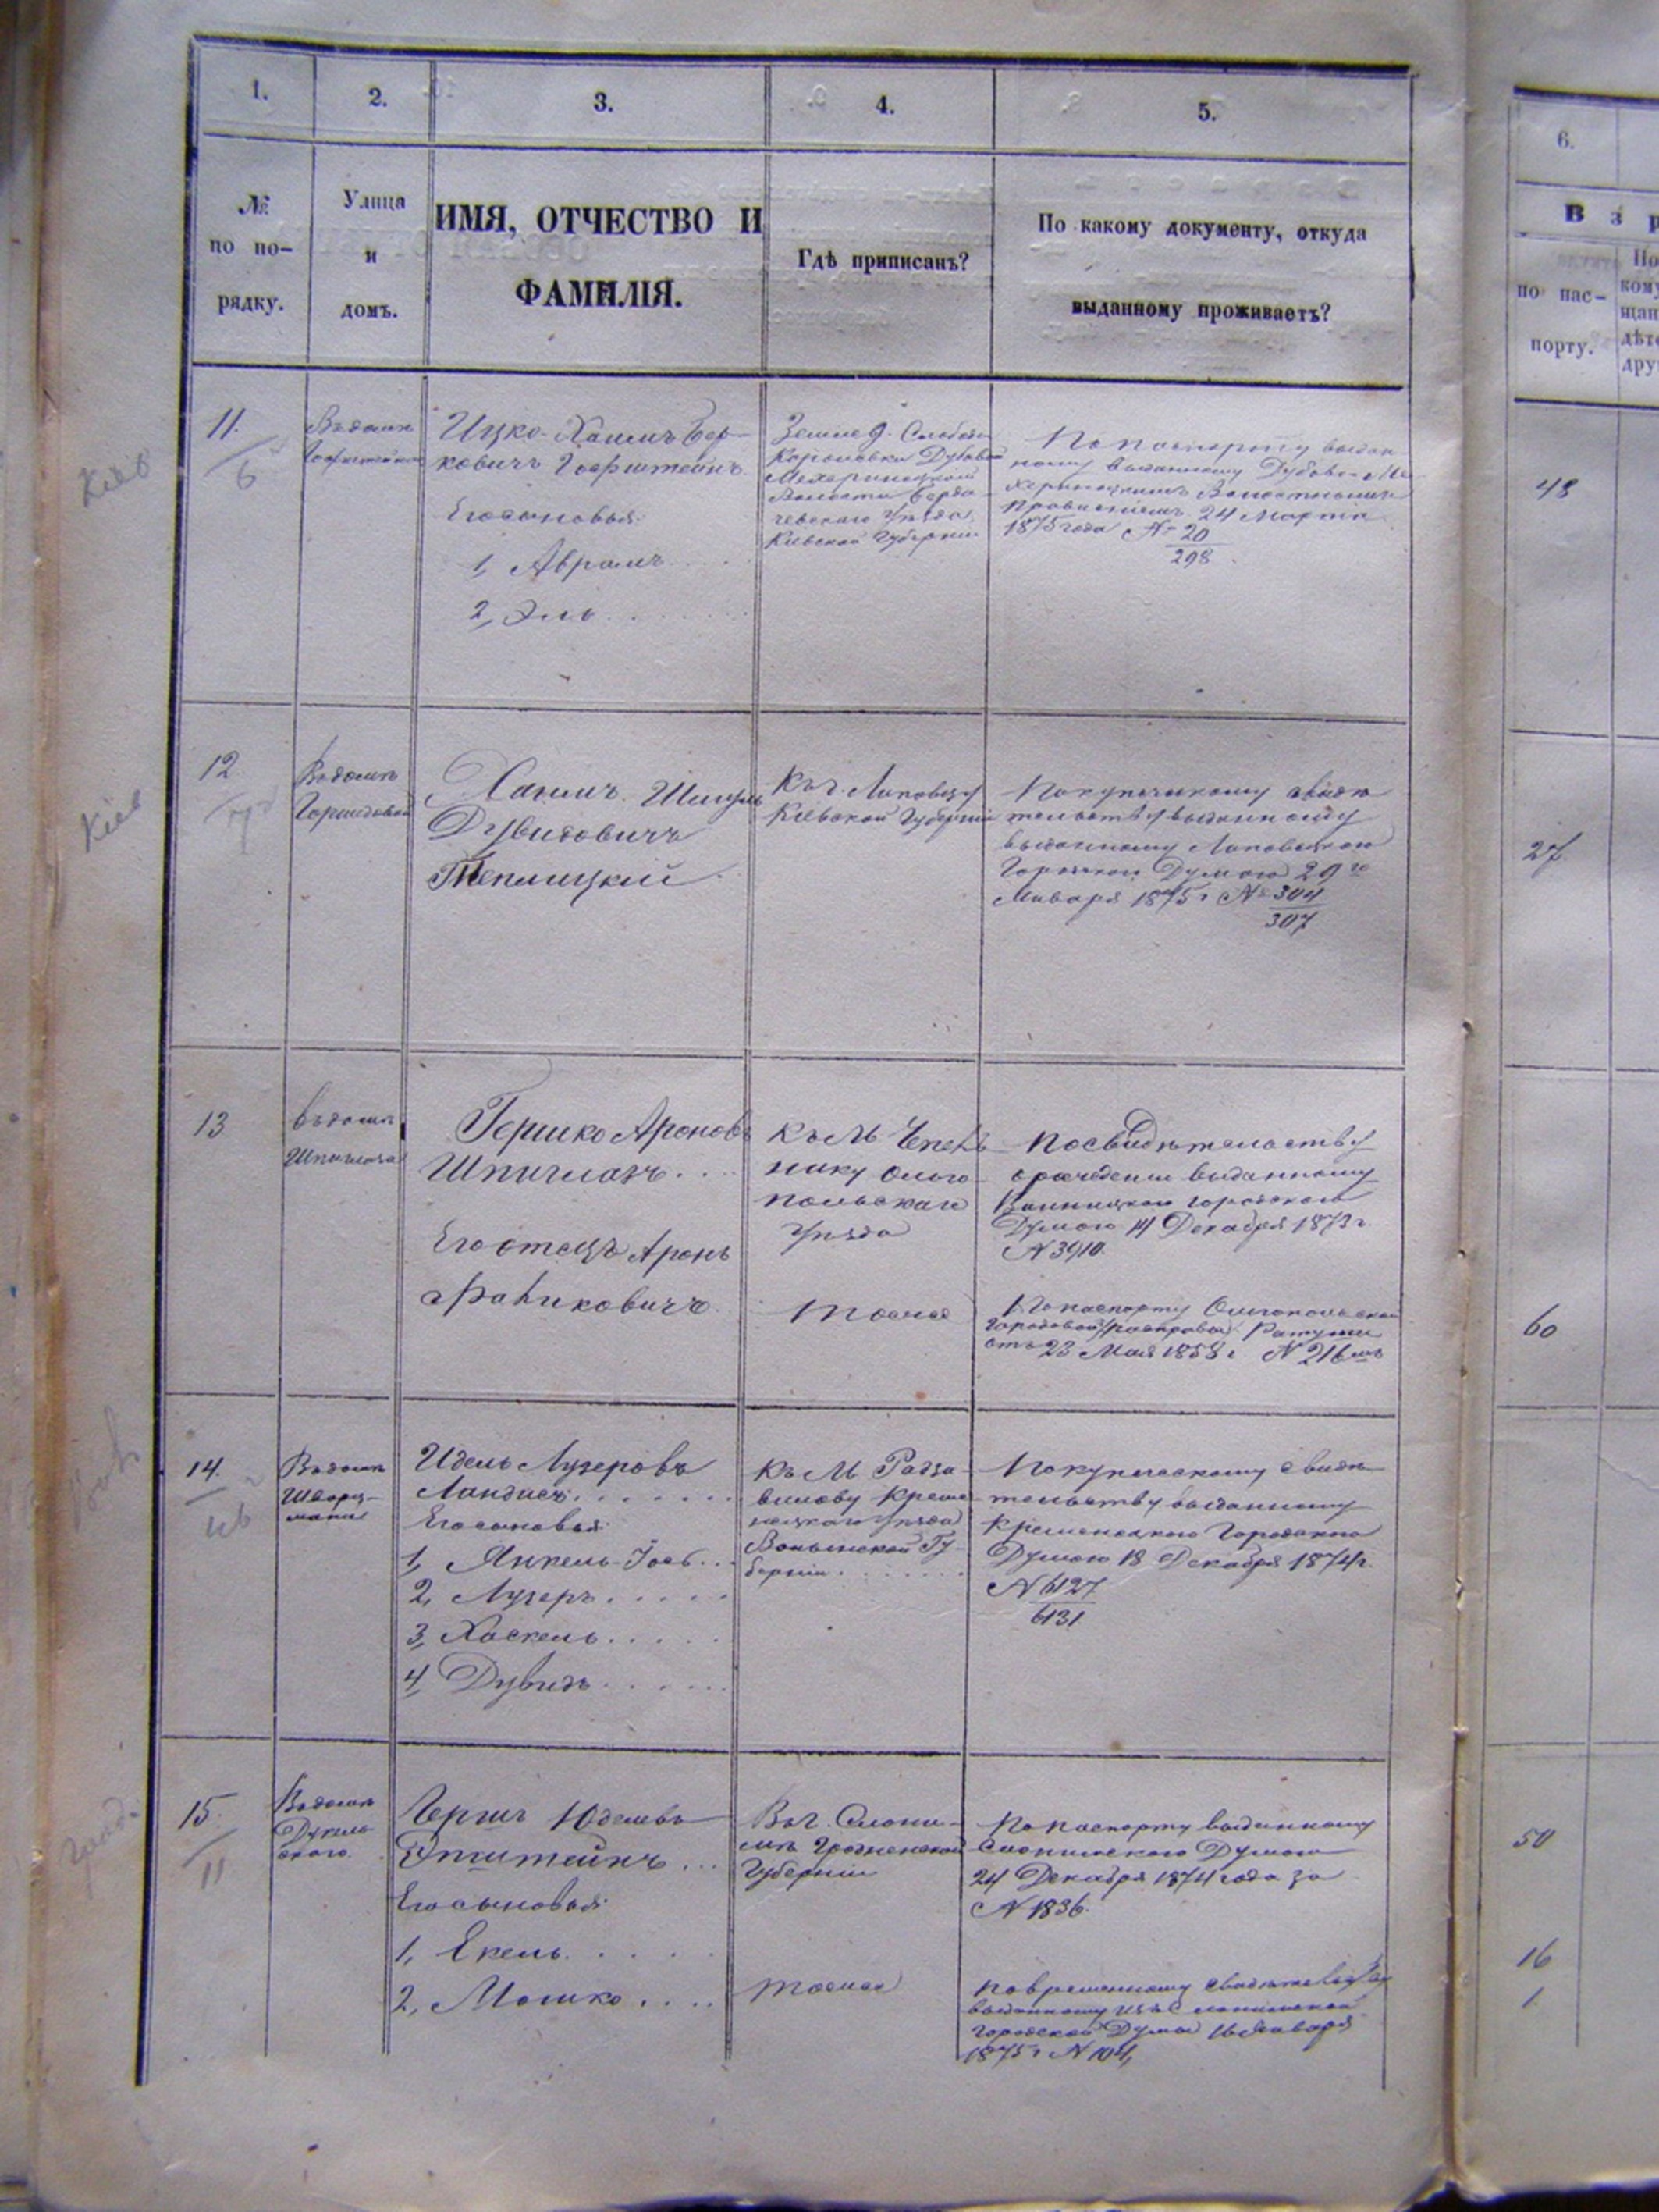 1.
2.
3.
4.
5.
6.
№
по по-
рядку.
Улица
и
домъ.
ИМЯ, ОТЧЕСТВО И
ФАМИЛІЯ.
Гдѣ приписанъ?
По какому документу, откуда
выданному проживаетъ?
В з р
по пас-
порту.
По
кому
щан
дѣте
дру
Кіев
11.
6
Въ домѣ
Ицко-Хаимъ Бер-
ковичъ
Его сыновья:
1, Аврамъ
2, Эль
Землед. Слободы
Королевки
Волости Берди-
чевскаго Уѣзда
Кіевской Губерніи
По паспорту
выданному
Волостнымъ
Правленіемъ 24 Марта
1875 года № 20
298
48
Кіев
12
Въ домѣ
Хаимъ Шмуль
Дувидовичъ
Теплицкій
Къ г. Липовцу
Кіевской Губерніи
По купеческому свидѣ-
тельству
выданному Липовецкою
Городскою Думою 29го
Января 1875 г № 304
307
27
13
Въ домѣ
Шпигмана
Гершко Ароновъ
Шпигманъ
Его отецъ Аронъ
Къ М.
нику Ольго-
польскаго
Уѣзда
тоже
По свидѣтельству
выданному
Винницкою Городскою
Думою 14 Декабря 1873 г.
№ 3910.
По паспорту Ольгопольской
Ратуши
отъ 23 Мая 1858 г. № 216мъ
60
14.
Въ домѣ
Шварц-
мана
Идель Лузеровъ
Ландисъ
Его сыновья:
1, Янкель-Іосъ
2, Лузеръ
3, Хаскель
4, Дувидъ
Къ М Радзи-
вилову Креме-
нецкаго Уѣзда
Волынской Гу-
берніи
По купеческому свидѣ-
тельству выданному
Кременецкою Городскою
Думою 18 Декабря 1874 г.
№ 6127
6131
15.
11
Въ домѣ
Гершъ Юделевъ
Эпштейнъ
Его сыновья:
1, Екель
2, Мошко
Въ г. Слони-
мѣ Гродненской
Губерніи
тоже
По паспорту выданному
Слонимскою Думою
24 Декабря 1874 года за
№ 1836.
По временному
выданному изъ Слонимской
Городской Думы 16 Января
1875 г № 104,
50
16
1.